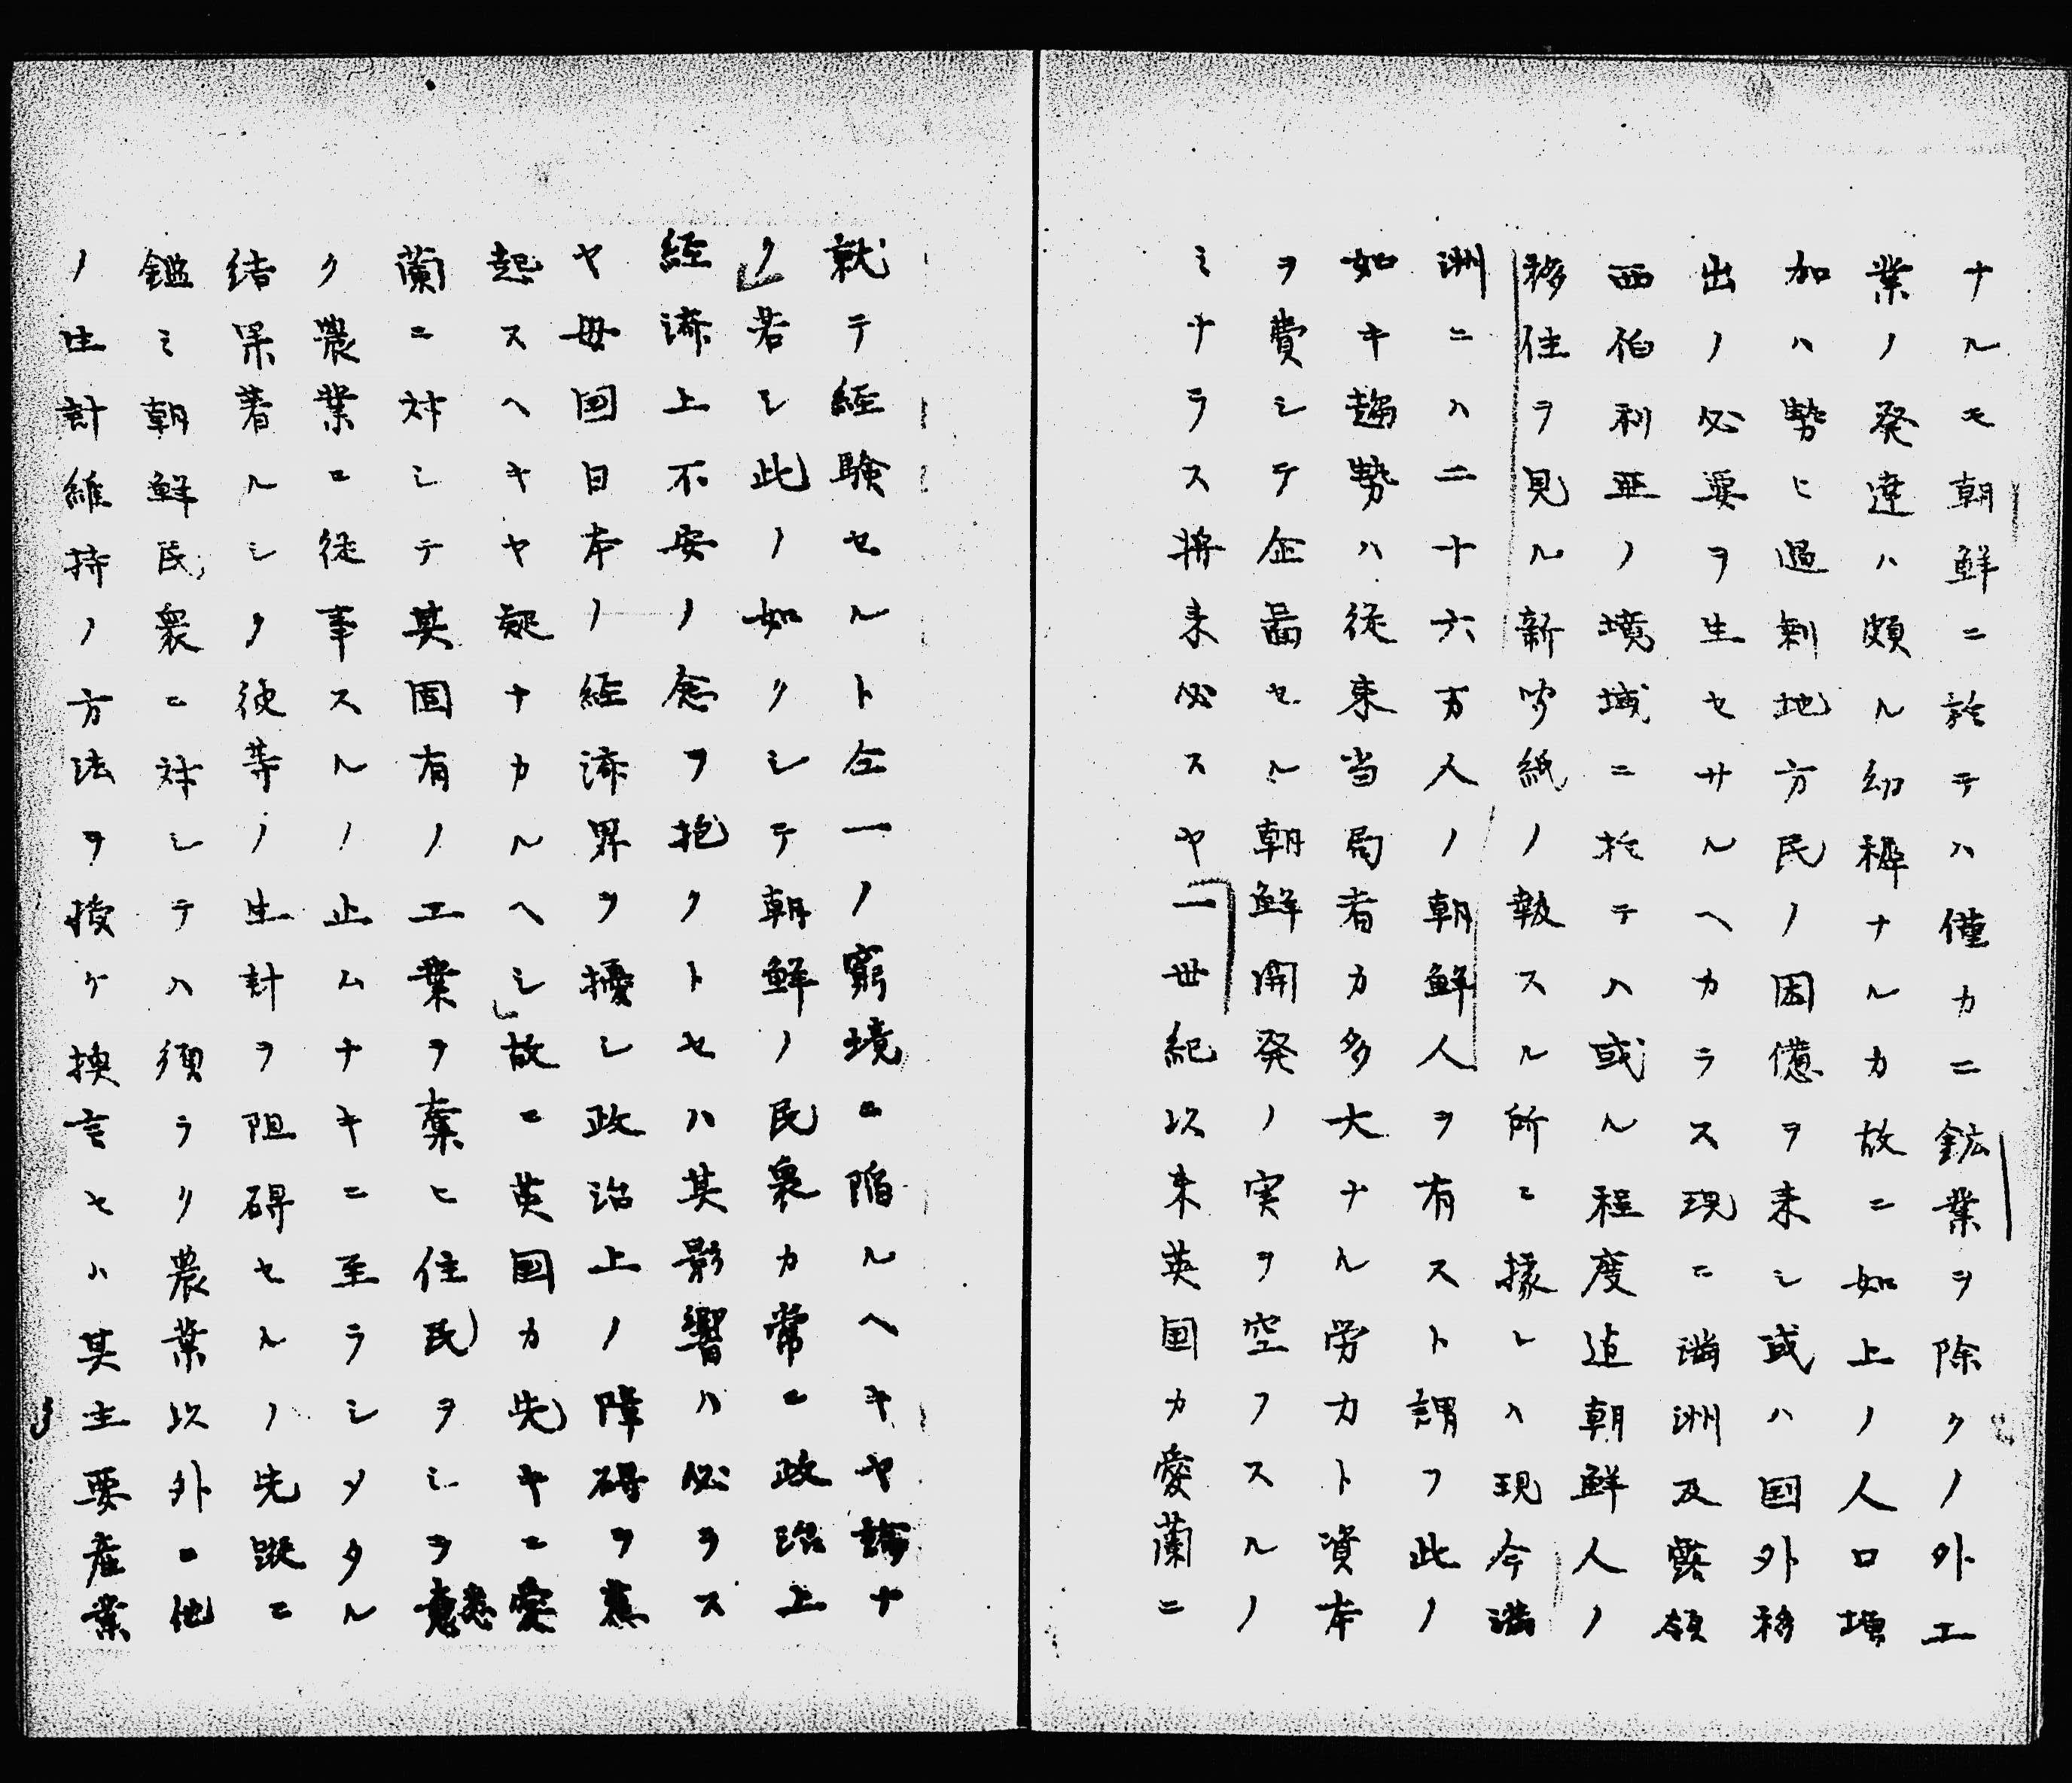 ナルモ朝鮮ニ於テハ僅カニ鉱業ヲ除クノ外工
業ノ発達ハ頗ル幼穉ナルカ故ニ如上ノ人口増
加ハ勢ヒ過剰地方民ノ困憊ヲ来シ或ハ国外移
出ノ必要ヲ生セサルヘカラス現ニ満洲及露領
西伯利亜ノ境域ニ於テハ或ル程度迠朝鮮人ノ
移住ヲ見ル新聞紙ノ報スル所ニ據レハ現今満
洲ニハ二十六万人ノ朝鮮人ヲ有スト謂フ此ノ
如キ趨勢ハ従来当局者カ多大ナル労力ト資本
ヲ費シテ企畵セル朝鮮開発ノ実ヲ空フスルノ
ミナラス将来必スヤ一世紀以来英国カ愛蘭ニ
就テ経験セルト仝一ノ窮境ニ陥ルヘキヤ論ナ
ク若シ此ノ如クシテ朝鮮ノ民衆カ常ニ政治上
経済上不安ノ念ヲ抱クトセハ其影響ハ必ラス
ヤ母国日本ノ経済界ヲ擾シ政治上ノ障碍ヲ惹
起スヘキヤ疑ナカルヘシ故ニ英国カ先キニ愛
蘭ニ対シテ其固有ノ工業ヲ棄ヒ住民ヲシヲ悉
ク農業ニ従事スルノ止ムナキニ至ラシメタル
結果著ルシク彼等ノ生計ヲ阻碍セルノ先蹤ニ
鑑ミ朝鮮民衆ニ対シテハ須ラク農業以外ニ他
ノ生計維持ノ方法ヲ授ケ換言セハ其主要産業